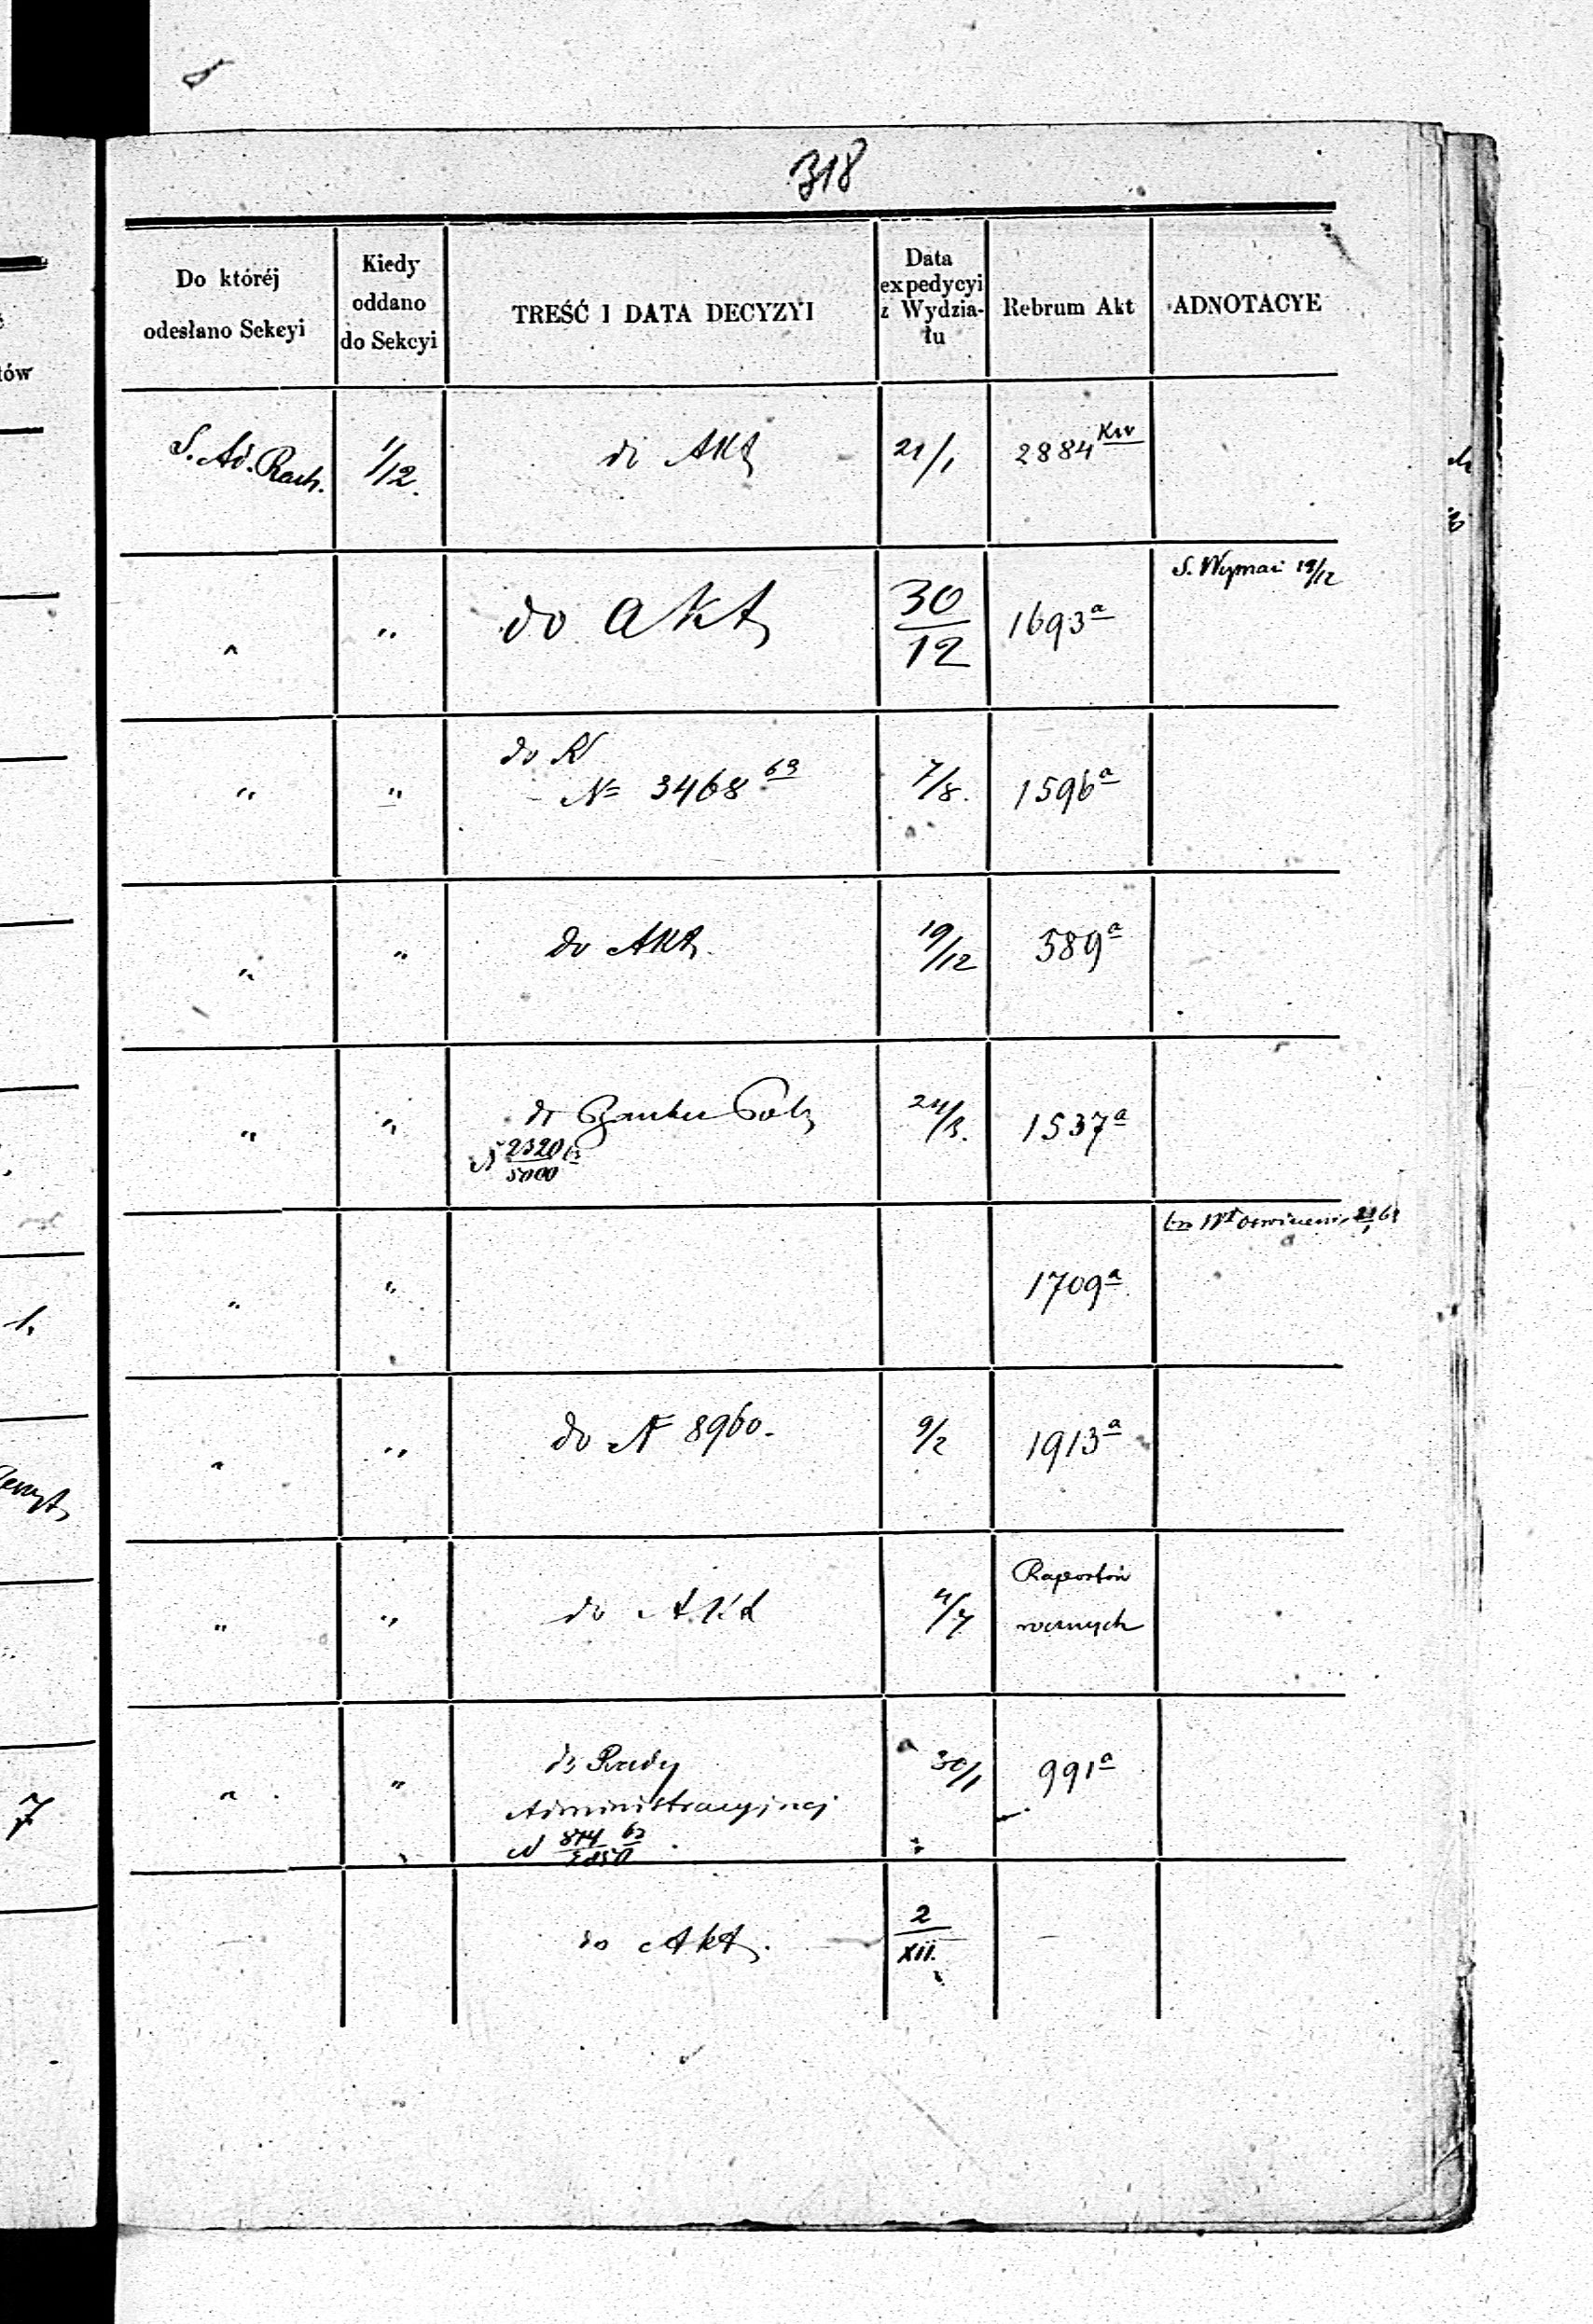 318
Do któréj odesłano Sekcyi
Kiedy oddano do Sekcyi
TREŚĆ I DATA DECYZYI
Data expedycyi z Wydzia- łu
Rebrum Akt
ADNOTACYE
S. Ad. Rach. 1/12. do Akt 21/1 2884
S. Wymai 19/12
" " do Akt 30/12 1693a
do N
" " № 3468 63 7/8. 1596a
" " do Akt. 19/12 589a
" " do Banku Pols 24/3. 1537a
N 2320/5000
" " 1709a
" " do N 8960. 9/2 1913a
Raportów
" " do Akt 4/7 rocznych
" " do Rady 30/1 991a
Administracyjnej
N
do Akt. 2/XII.
7